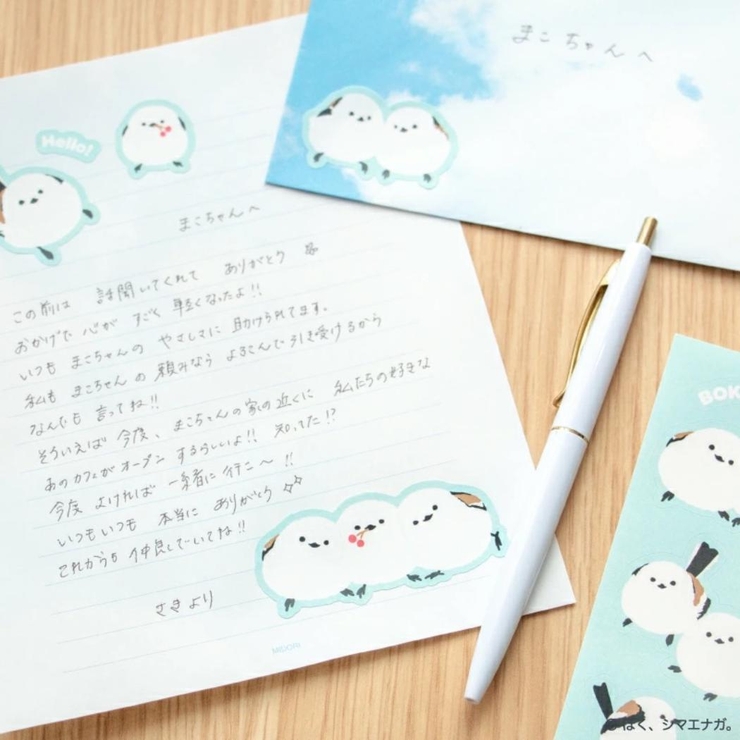 まこちゃんへ
Hello!
まこちゃんへ
この前は 話聞いてくれて ありがとう
おかげで 心が すごく 軽くなったよ!!
いつも まこちゃんの やさしさに 助けられてます。
私も まこちゃんの 頼みなら よろこんで引き受けるから
なんでも 言ってね!!
そういえば 今度、まこちゃんの家の近くに 私たちの好きな
あのカフェがオープン するらしいよ!! 知ってた!?
今度 よければ 一緒に 行こ〜!!
いつもいつも 本当に ありがとう
これからも 仲良しでいてね!!
さきより
MIDORI
BOK
ぼく、シマエナガ。